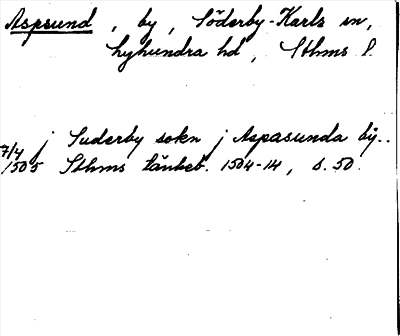 Aspsund, by, Söderby-Karls sn,
Lyhundra hd, Sthms l.
7/4 j Suderby sokn j Aspasunda by..
1505 Sthms tänkeb. 1504-14, s. 50.